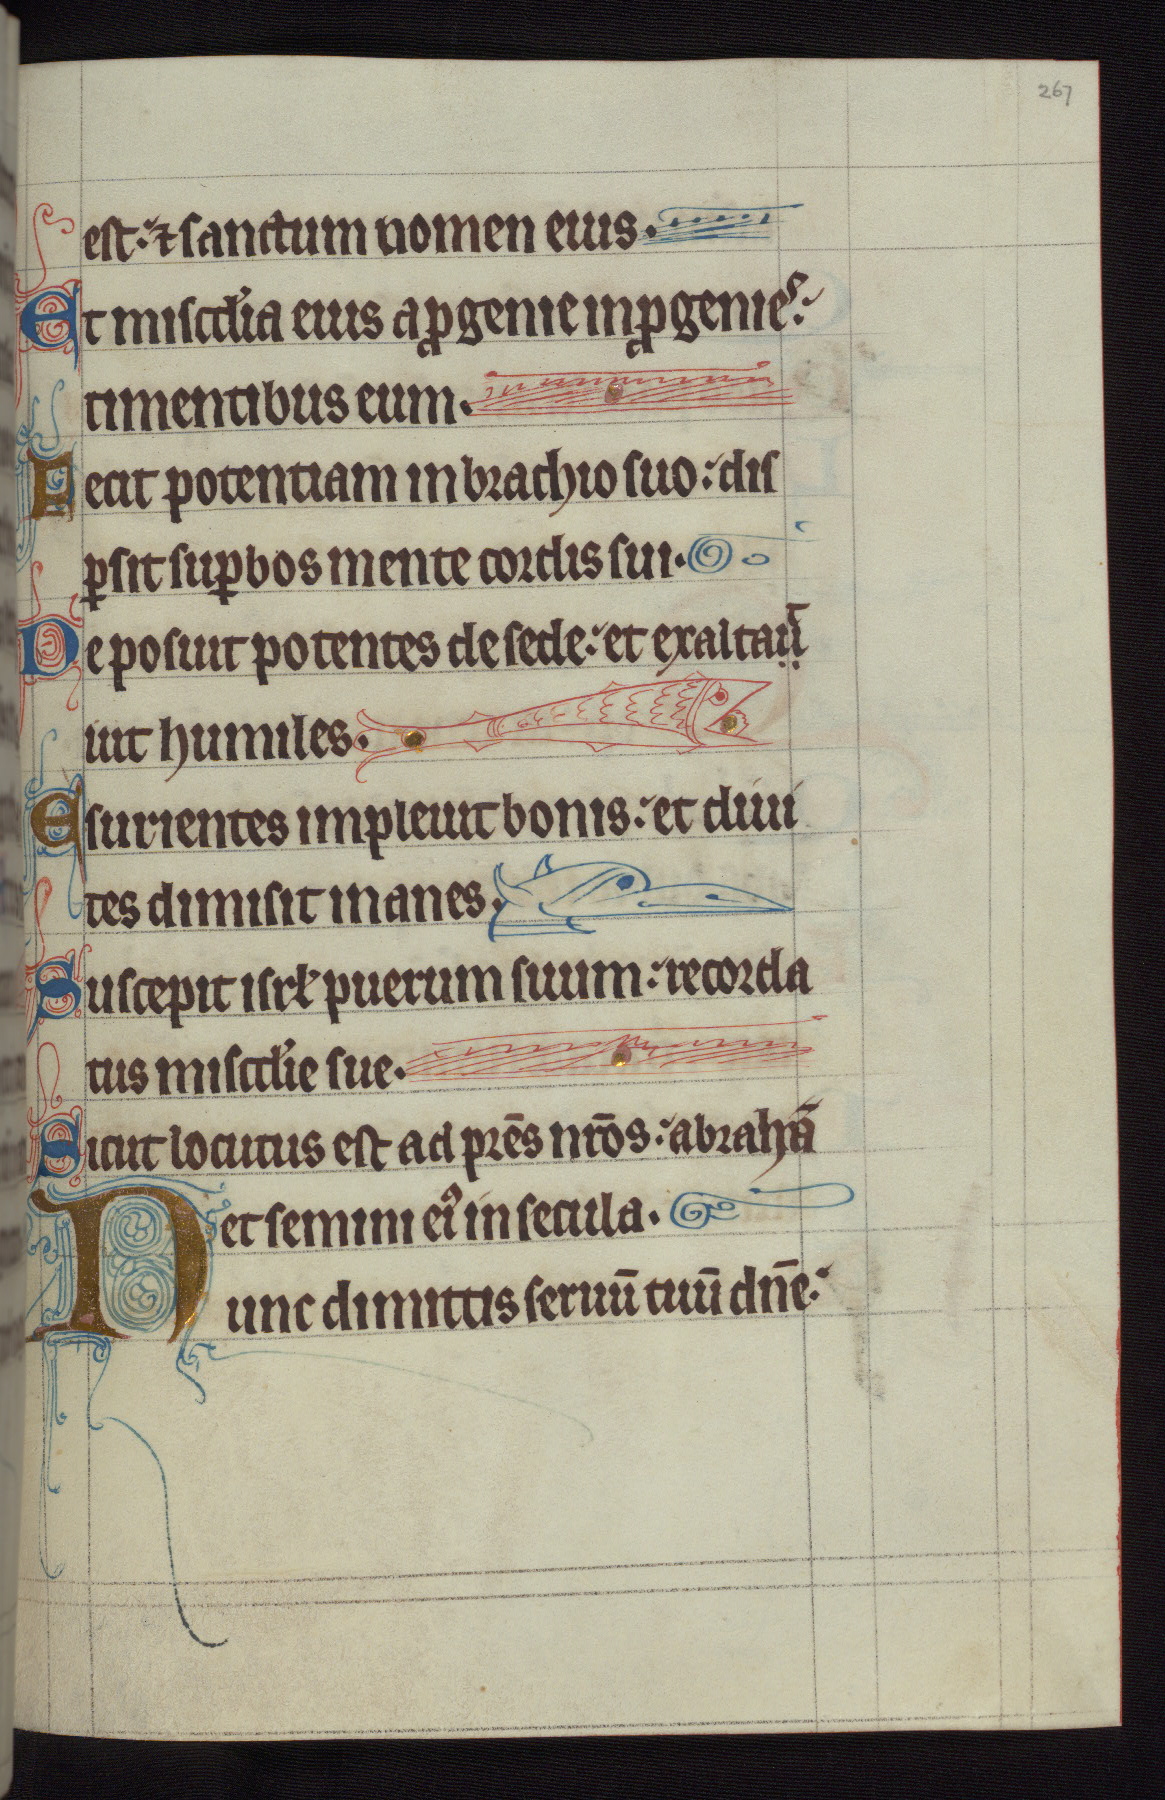 267
est: ⁊ sanctum nomen eius.
Et miscdia eius a ꝓgenie in ꝓgenieˢ:
timentibus eum.
Fecit potentiam in brachio suo: dis
ꝑsit suꝑbos mente cordis sui.
De posuit potentes de sede: et exaltaū
iut humiles.
Esurientes impleuit bonis: et diui
tes dimisit inanes.
Suscepit isrł puerum suum: recorda
tus miscdie sue.
Sicut locutus est ad prēs nrōs: abrahā
et semini eiꝰ in secula.
Nunc dimittis seruū tuū dnē: